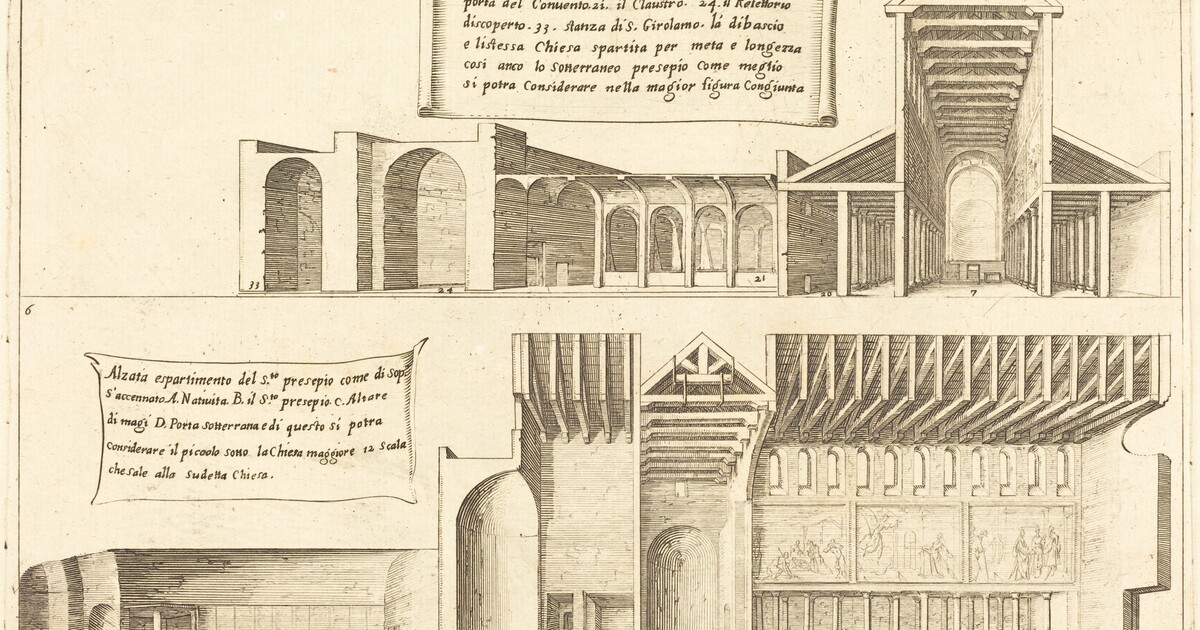 porta del Conuento. 21. il Claustro. 24. il Refettorio
discoperto. 33. stanza di S. Girolamo. la dibascio
e listessa Chiesa spartita per meta e longezza
cosi anco lo sotterraneo presepio Come meglio
si potra Considerare nella magior figura Congiunta
33
24
21
20
7
6
Alzata espartimento del S.to presepio come di Sop.
S'accennato A. Natiuita B. il S.to presepio C. Altare
di magi D. Porta sotterrana e di questo si potra
considerare il picoolo sotto la Chiesa maggiore 12 Scala
che Sale alla Sudetta Chiesa.